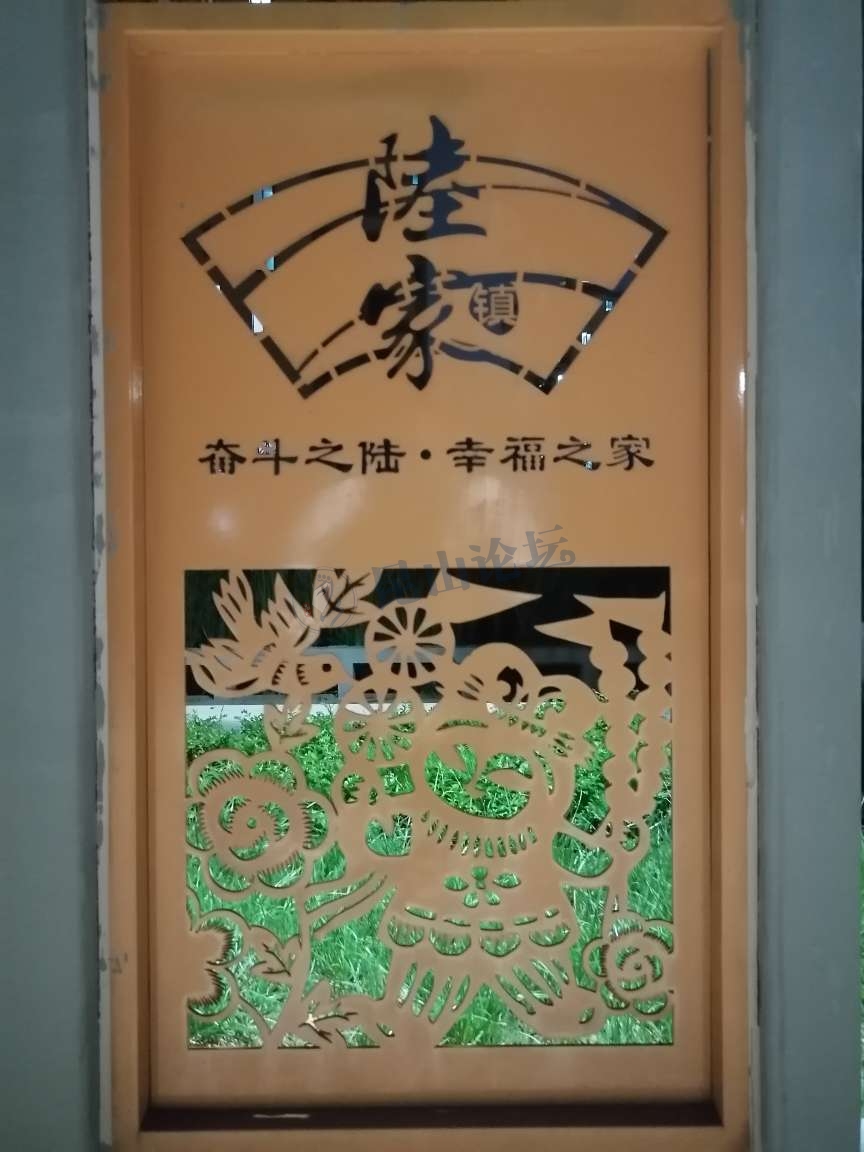 陸家
镇
奋斗之陆·幸福之家
昆山论坛